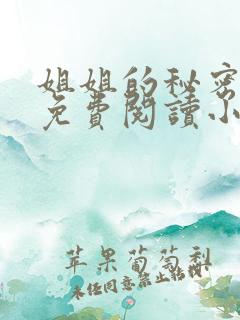 姐姐的秘密
免費閱讀小
苹果葡萄梨
未经同意禁止转载